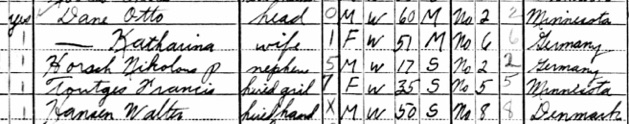 yes 1 Dane Otto head 0 M W 60 M No 2 2 Minnesota
1 — Katharina wife 1 F W 51 M No 6 6 Germany
1 Horsch Nikolous P nephew 5 M W 17 S No 2 2 Germany
1 Francis hired girl 7 F W 35 S No 5 5 Minnesota
1 Hansen Walter hired hand X M W 50 S No 8 8 Denmark